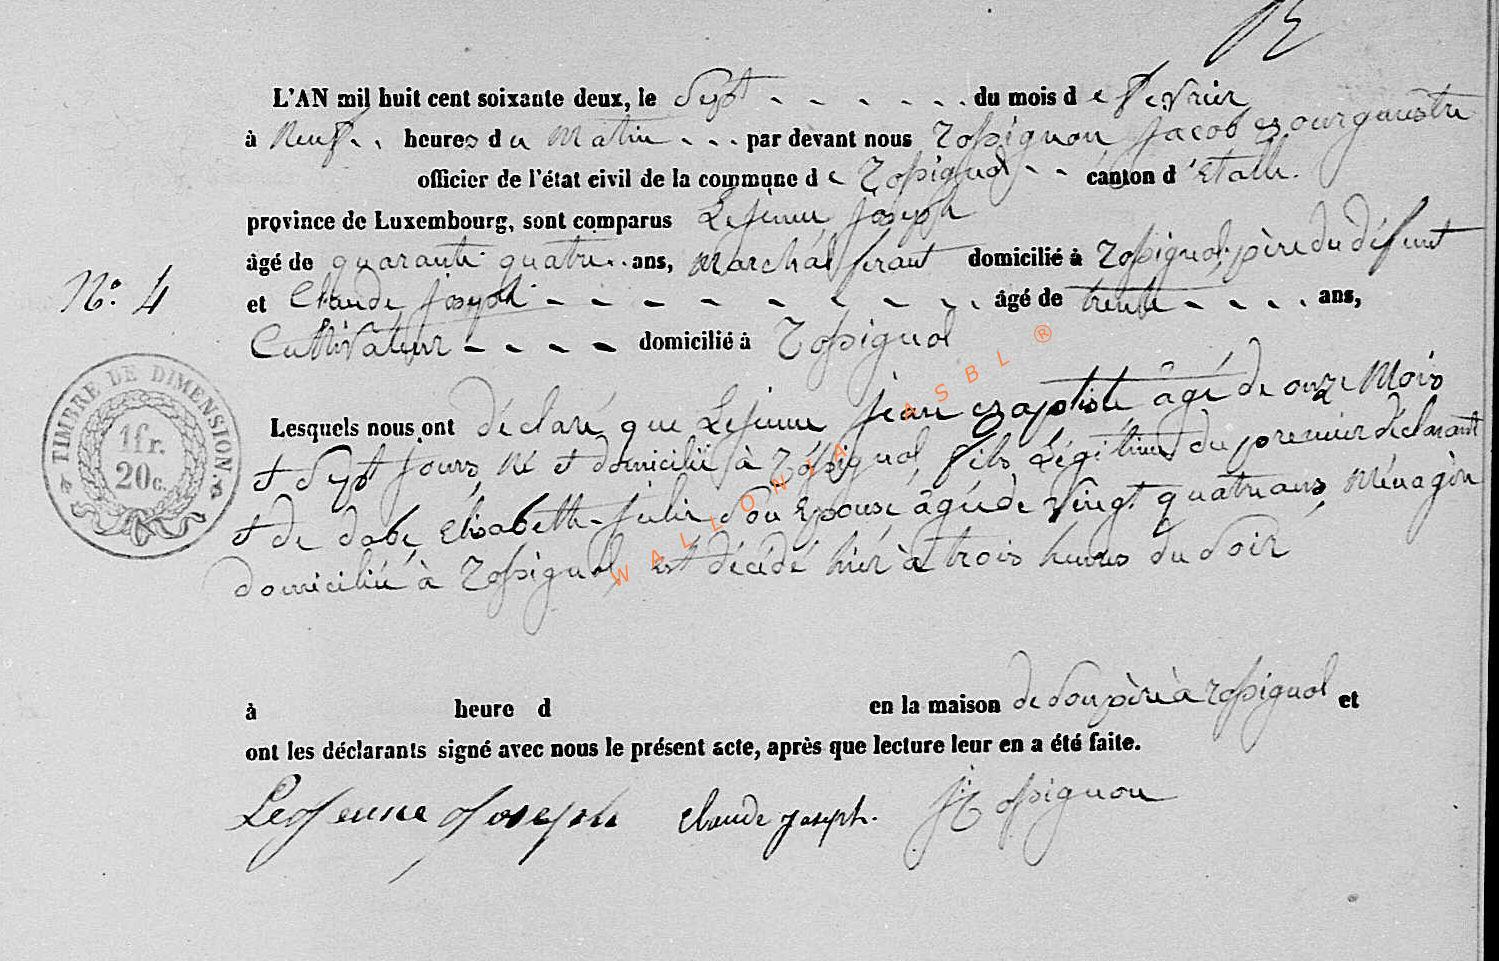 L'AN mil huit cent soixante deux, le Sept - - - - - - du mois de fevrier
à Neuf - - heures du Matin - - - par devant nous Rossignon Jacob Bourguméstre
officier de l'état civil de la commune de Rossignol - - canton d'Etalle.
province de Luxembourg, sont comparus Lejeune Joseph
âgé de quarante quatre - - ans, Marchál ferant domicilié à Rossignol père du défunt
N° 4
et Claude Joseph - - - - - - - - - - âgé de trente - - - - ans,
Cultivateur - - - - domicilié à Rossignol
TIMBRE DE DIMENSION
1 fr.
20 c.
Lesquels nous ont déclaré que Lejeune Jean Baptiste âgé de onze Mois
et Sept jours, né et domicilié à Rossignol, fils Légitime du premier déclarant
et de Elisabeth Julie Son Epouse âgée de vingt quatre ans, Ménagère
domiciliée à Rossignol, est décédé hier à trois heures du Soir
à heure d en la maison de Son père à Rossignol et
ont les déclarants signé avec nous le présent acte, après que lecture leur en a été faite.
LeJeune Joseph Claude Joseph. J Rossignon
WALLONIA ASBL ®